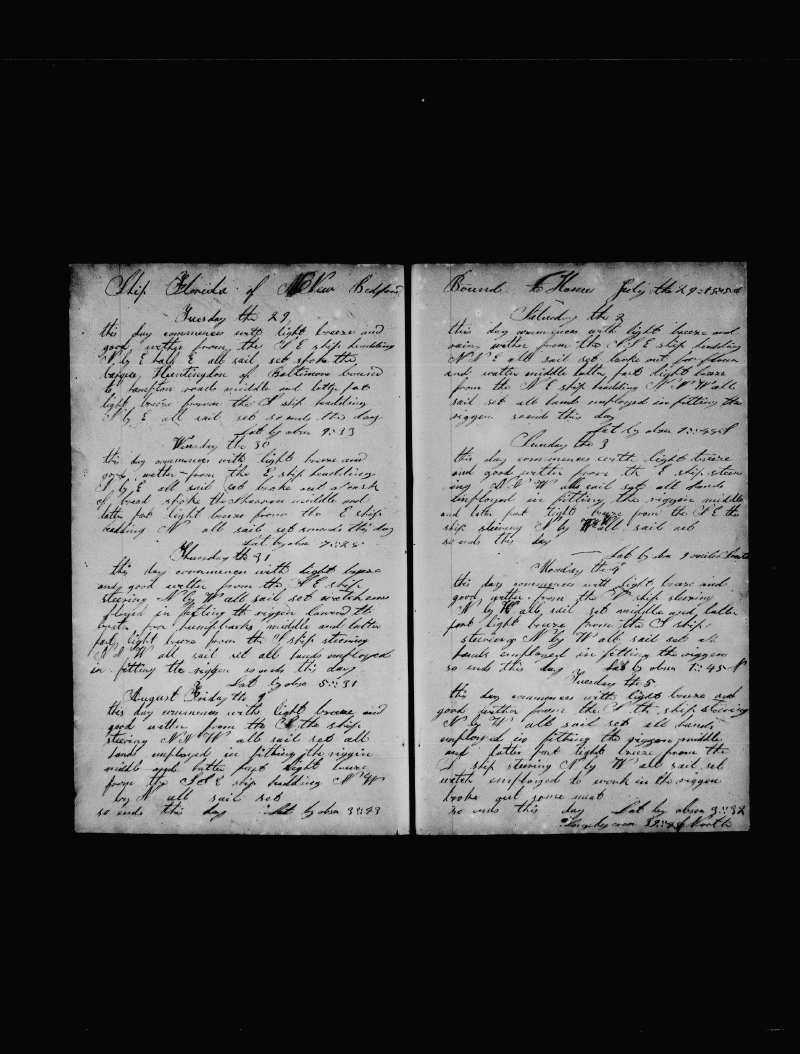 Ship Florida of New Bedford
Tuesday the 29
this day commences with light breeze and
good wether from the S E ship heading
N by E half E all sail set spoke the
Huntingdon of Baltimore bound
to hampton roads middle and latter part
light breeze from the S ship heading
N by E all sail set so ends this day
Lat by obser 9:33
the 30
this day commences with light breeze and
good wether from the E ship heading
by E all sail set broke out a cask
of bread spoke the middle and
latter part light breeze from the E ship
heading N all sail set so ends this day
Lat by obser 7:28
Thursday the 31
this day commences with light breeze
and good wether from the S E ship
steering N by W all sail set watch em
ployed in fitting th riggin lowered th
boats for humpbacks middle and latter
part light breeze from the S ship steering
N W all sail set all hands employed
in fitting the riggen so ends this day
Lat by obser 5:31
August Friday the 1
this day commences with light breeze and
good wether from the the ship
steering N W all sail set all
hands employed in fitting the riggin
middle and latter part light breeze
from the S E ship heading N W
by N all sail set
so ends this day Lat by obser 3:43
Bound Home July the 29
Saturday the 2
this day commences with light breeze and
rainy wether from the S E ship heading
N all sail set broke out for flour
and water middle latter part light breeze
from the N E ship heading N N W all
sail set all hands employed in fitting the
riggen so ends this day
Lat by obser
Sunday the 3
this day commences with light breeze
and good wether from th E ship steer
ing N W all sail set all hands
employed in fitting the riggin middle
and latter part light breeze from the S E the
ship steering N by W all sail set
so ends this day
Lat by obser 9 miles South
Monday the 4
this day commences with light breeze and
good wether from the ship steering
N by W all sail set middle and latter
part light breeze from the S ship
steering N by W all sail set all
hands employed in fitting the riggen
so ends this day Lat by obser 1:45 N
Tuesday the 5
this day commences with light breeze and
good wether from the S th ship steering
N by W all sail set all hands
employed in fitting the riggen middle
and latter part light breeze from the
S ship steering N by W all sail set
watch employed to work in the riggen
broke out some meat
so ends this day Lat by obser 3:32
North